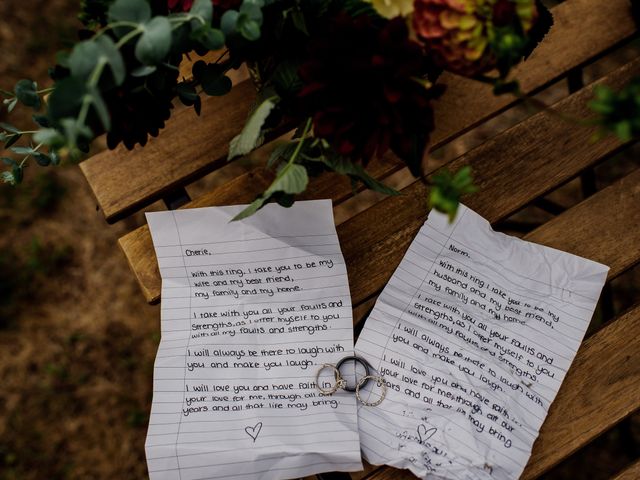 Cherie,
With this ring, I take you to be my
wife and my best friend,
my family and my home.
I take with you all your faults and
strengths, as I offer myself to you
with all my faults and strengths.
I will always be there to laugh with
you and make you laugh.
I will love you and have faith in
your love for me, through all our
years and all that life may bring.
Norm,
With this ring, I take you to be my
husband and my best friend,
my family and my home.
I take with you all your faults and
strengths, as I offer myself to you
with all my faults and strengths.
I will always be there to laugh with
you and make you laugh.
I will love you and have faith in
your love for me, through all our
years and all that life may bring